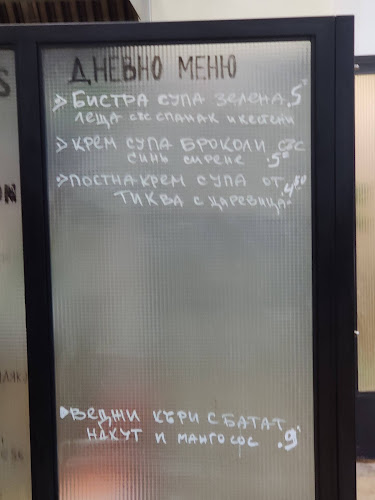 ДНЕВНО МЕНЮ
БИСТРА СУПА ЗЕЛЕНА 5
ЛЕЩА СЪС СПАНАК И КЕСТЕНИ
КРЕМ СУПА БРОКОЛИ СЪС
СИНЬО СИРЕНЕ .5⁰
ПОСТНА КРЕМ СУПА ОТ
ТИКВА С ЦАРЕВИЦА
ВЕДЖИ КЪРИ С БАТАТ
НАХУТ И МАНГО СОС .9